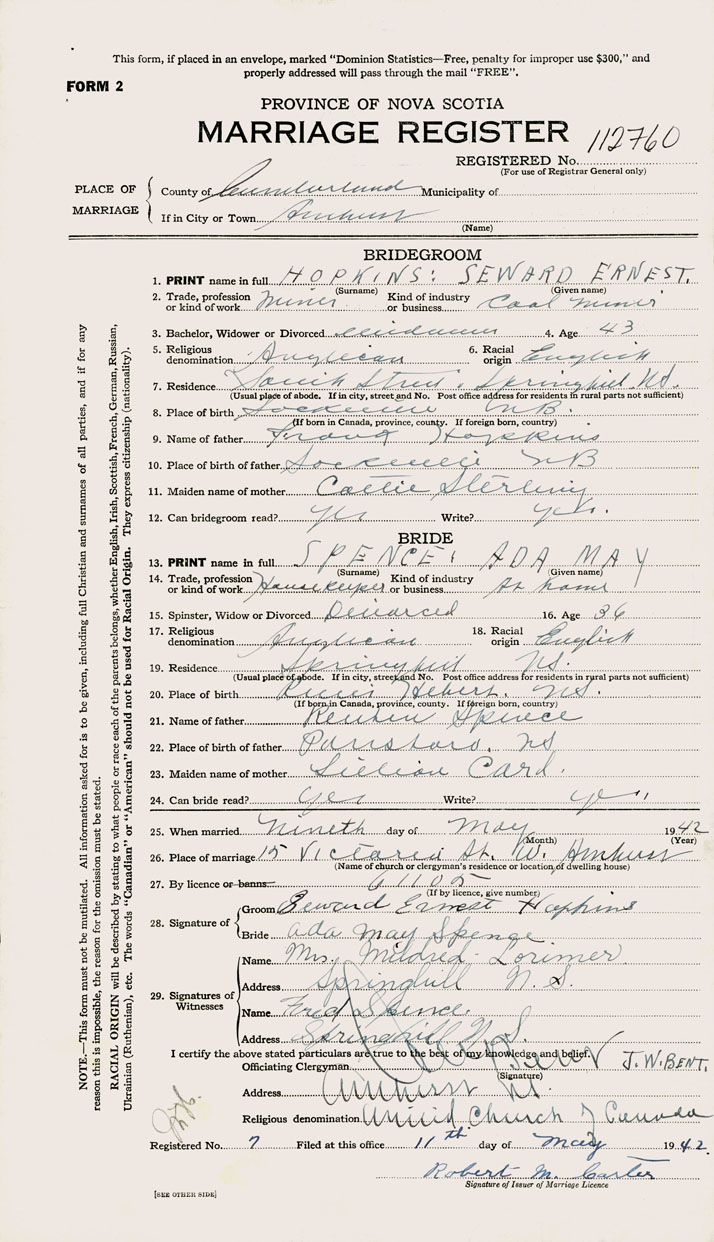 This form, if placed in an envelope, marked "Dominion Statistics—Free, penalty for improper use $300," and
properly addressed will pass through the mail "FREE".
FORM 2
PROVINCE OF NOVA SCOTIA
MARRIAGE REGISTER 112760
REGISTERED No.
(For use of Registrar General only)
PLACE OF MARRIAGE
County of Cumberland Municipality of
If in City or Town Amherst
(Name)
BRIDEGROOM
1. PRINT name in full HOPKINS: SEWARD ERNEST.
(Surname) (Given name)
2. Trade, profession or kind of work Miner Kind of industry or business Coal Miner
3. Bachelor, Widower or Divorced 4. Age 43
5. Religious denomination Anglican 6. Racial origin English
7. Residence Springhill N.S.
(Usual place of abode. If in city, street and No. Post office address for residents in rural parts not sufficient)
8. Place of birth N.B.
(If born in Canada, province, county. If foreign born, country)
9. Name of father Frank Hopkins
10. Place of birth of father NB
11. Maiden name of mother Sterling
12. Can bridegroom read? yes Write? yes.
BRIDE
13. PRINT name in full SPENCE: ADA MAY
(Surname) (Given name)
14. Trade, profession or kind of work Housekeeper Kind of industry or business At home
15. Spinster, Widow or Divorced Divorced 16. Age 36
17. Religious denomination Anglican 18. Racial origin English
19. Residence Springhill NS.
(Usual place of abode. If in city, street and No. Post office address for residents in rural parts not sufficient)
20. Place of birth River Hebert. NS.
(If born in Canada, province, county. If foreign born, country)
21. Name of father Reuben Spence
22. Place of birth of father Parrsboro. NS
23. Maiden name of mother Lillian Card.
24. Can bride read? yes Write? yes.
25. When married Nineth day of May 1942
(Month) (Year)
26. Place of marriage 15 Victoria St. W. Amherst
(Name of church or clergyman's residence or location of dwelling house)
27. By licence or banns 61105
(If by licence, give number)
28. Signature of
Groom Seward Ernest Hopkins
Bride Ada May Spence
29. Signatures of Witnesses
Name Mrs. Mildred Lorimer
Address Springhill N.S.
Name Fred Spence.
Address Springhill N.S.
I certify the above stated particulars are true to the best of my knowledge and belief.
Officiating Clergyman J.W. BENT.
(Signature)
Address Amherst NS
Religious denomination United Church of Canada
Registered No. 7 Filed at this office 11th day of May 1942.
Robert M. Carter
Signature of Issuer of Marriage Licence
[SEE OTHER SIDE]
NOTE.—This form must not be mutilated. All information asked for is to be given, including full Christian and surnames of all parties, and if for any
reason this is impossible, the reason for the omission must be stated.
RACIAL ORIGIN will be described by stating to what people or race each of the parents belongs, whether English, Irish, Scottish, French, German, Russian,
Ukrainian (Ruthenian), etc. The words "Canadian" or "American" should not be used for Racial Origin. They express citizenship (nationality).